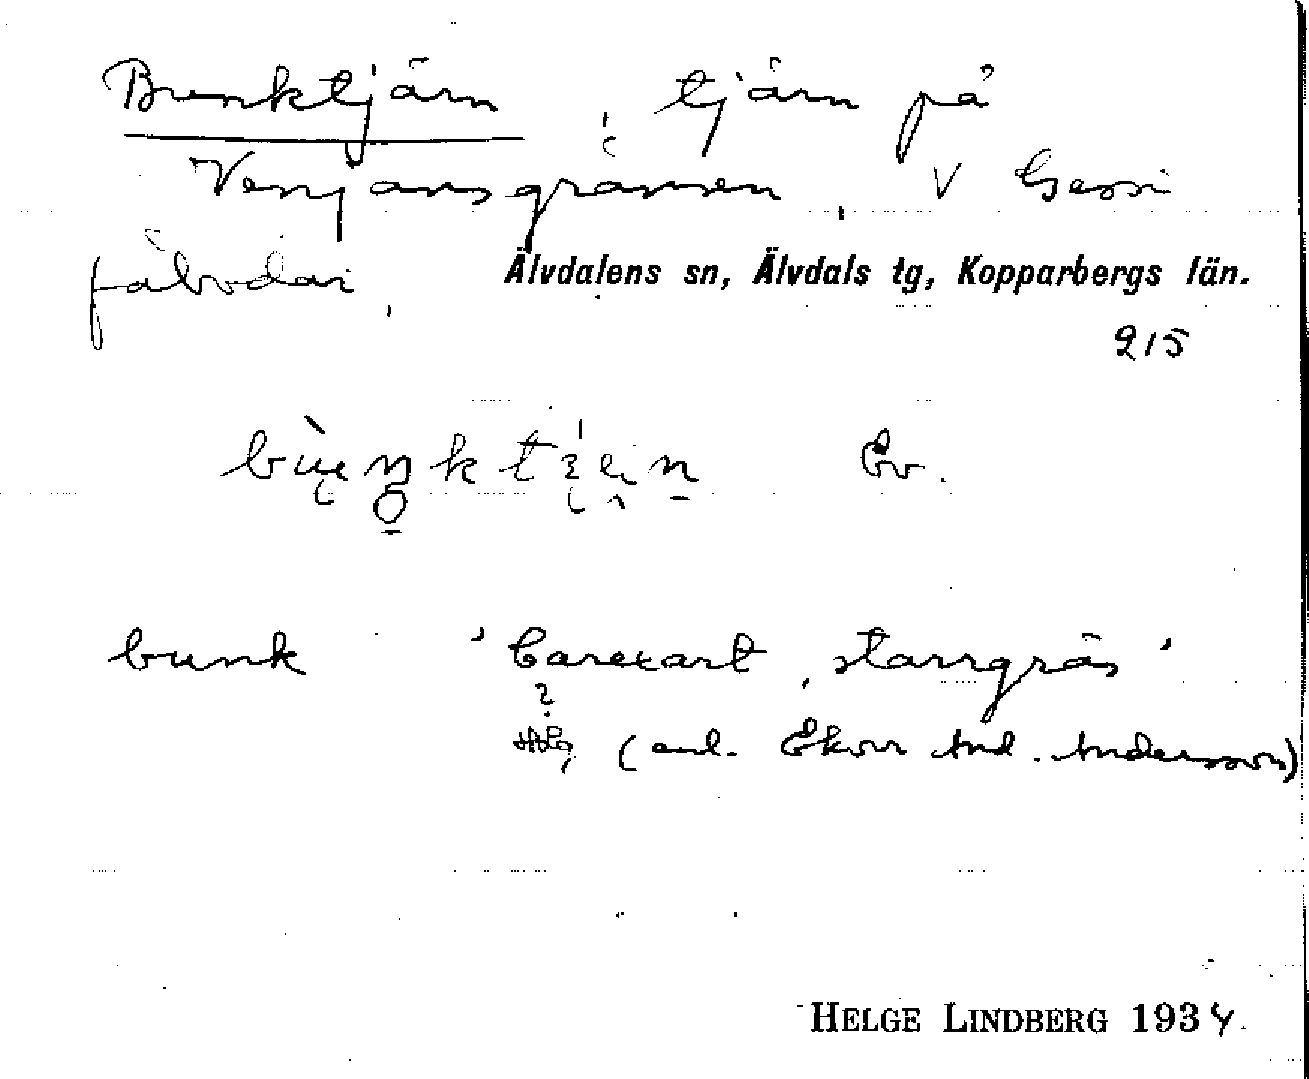 Bunktjärn, tjärn på
Venjansgränsen, V Gessi
fäbodar, Älvdalens sn, Älvdals tg, Kopparbergs län.
215
Ev.
bunk 'Carexart, starrgräs'
? (enl. Ekorr And. Andersson)
HELGE LINDBERG 1934